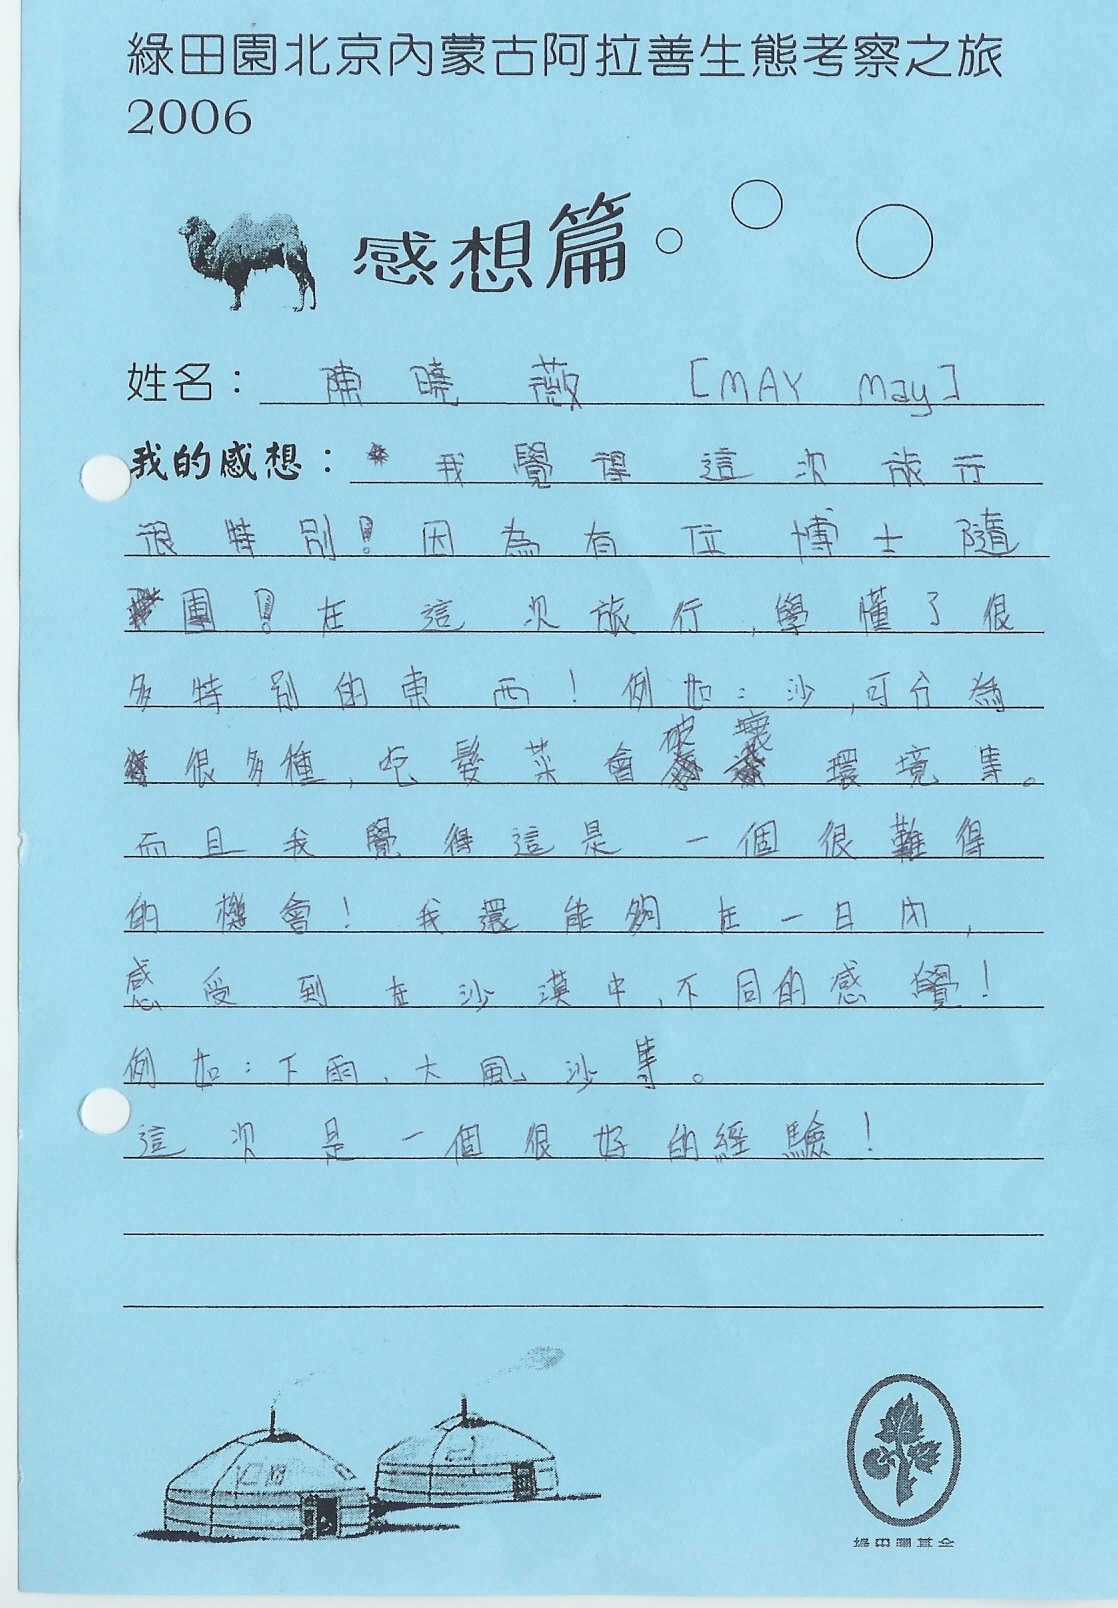 綠田園北京內蒙古阿拉善生態考察之旅
2006
感想篇
姓名：陳曉薇 [MAY May]
我的感想：我覺得這次旅行
很特別！因為有位博士隨
團！在這次旅行，學懂了很
多特別的東西！例如：沙，可分為
很多種，吃髮菜會破壞環境等。
而且我覺得這是一個很難得
的機會！我還能夠在一日內，
感受到在沙漠中，不同的感覺！
例如：下雨、大風沙等。
這次是一個很好的經驗！
綠田園基金